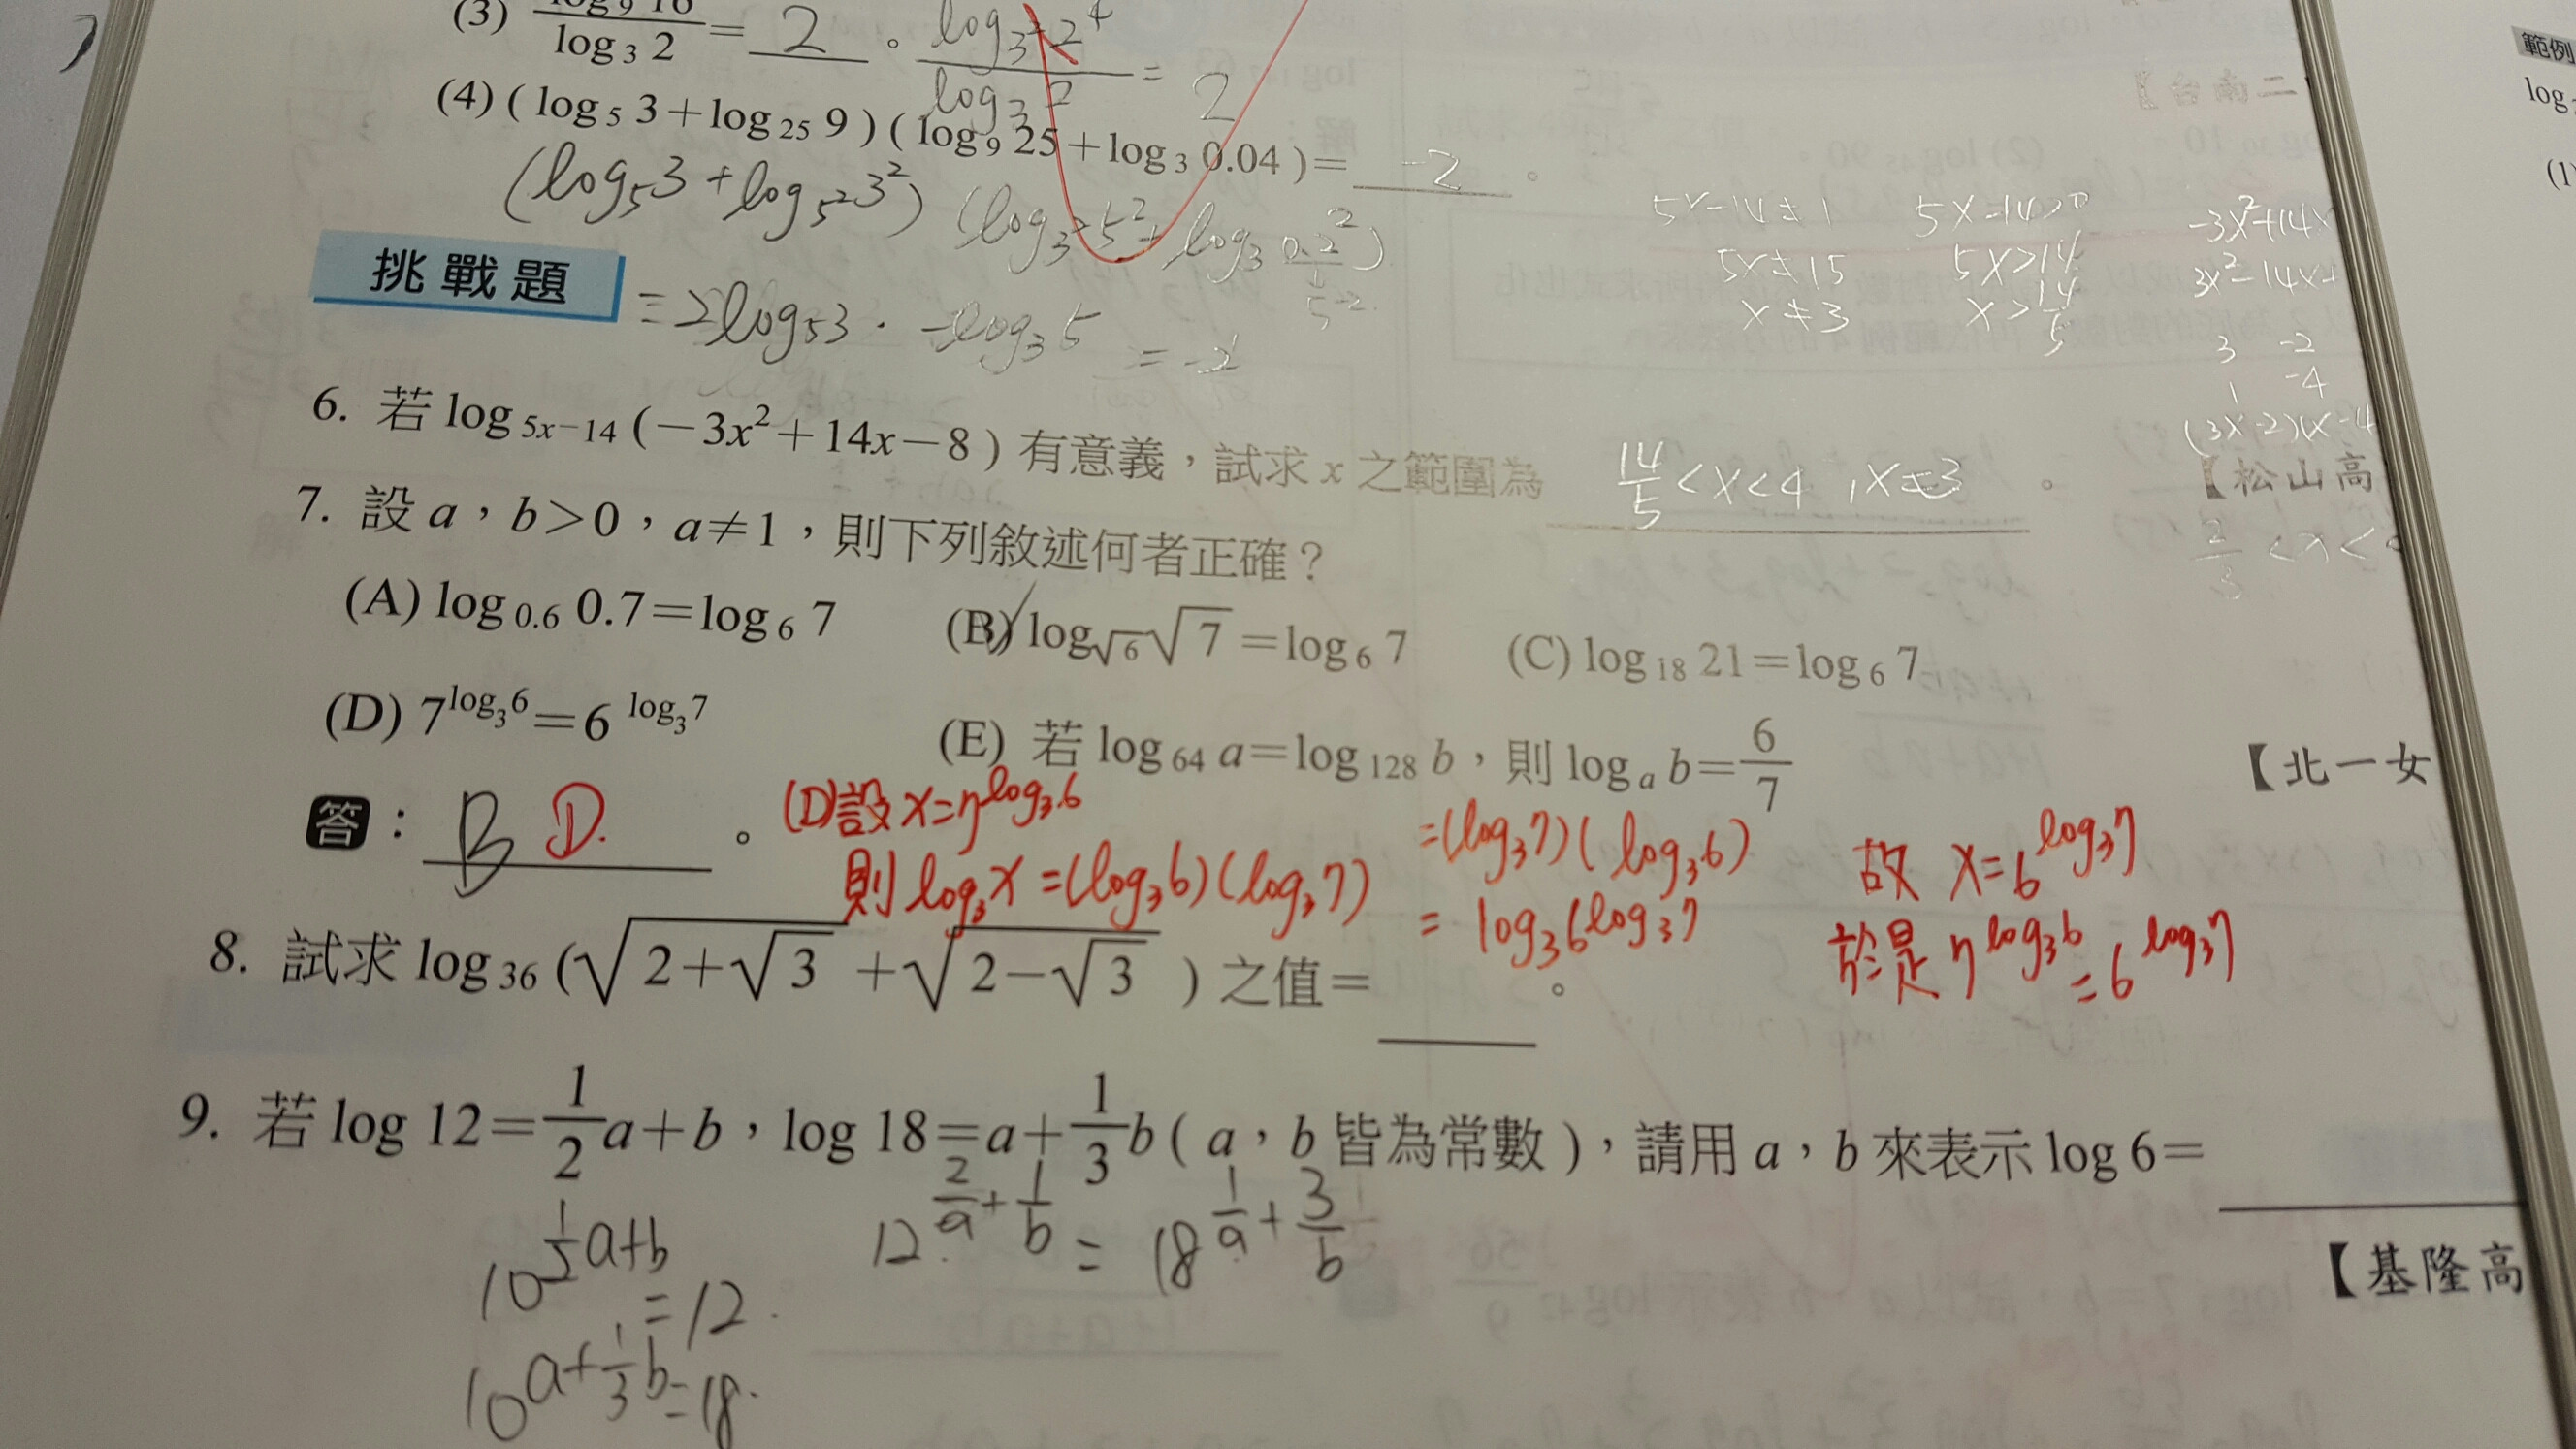 (3) log₉ 16 / log₃ 2 = 2 。 log₃² 2⁴ / log₃ 2 = 2
(4) ( log₅ 3 + log₂₅ 9 ) ( log₉ 25 + log₃ 0.04 ) = -2 。
(log₅3 + log₅²3²) (log₃²5² + log₃ 0.2²)
1/5⁻²
挑戰題
= 2log₅3 · -log₃5 = -2
5x-14≠1 5x-14>0 -3x²+14x
5x≠15 5x>14 3x²-14x+
x≠3 x>14/5
3 -2
1 -4
(3x-2)(x-4
6. 若 log₅ₓ₋₁₄ (−3x²+14x−8) 有意義，試求 x 之範圍為 14/5<x<4 , x≠3 。 【松山高
2/3 <x<
7. 設 a，b>0，a≠1，則下列敘述何者正確？
(A) log₀.₆ 0.7=log₆ 7 (B) log√6 √7 =log₆ 7 (C) log₁₈ 21=log₆ 7
(D) 7^log₃6=6^log₃7 (E) 若 log₆₄ a=log₁₂₈ b，則 logₐ b=6/7 【北一女
答： B D. 。 (D)設 x=7^log₃6
則 log₃x =(log₃6)(log₃7) =(log₃7)(log₃6) 故 x=6^log₃7
= log₃6^log₃7 於是 7^log₃6 = 6^log₃7
8. 試求 log₃₆ (√(2+√3) +√(2−√3) ) 之值= 。
9. 若 log 12=1/2 a+b，log 18=a+1/3 b ( a，b 皆為常數 )，請用 a，b 來表示 log 6=
12^(2/a+1/b) = 18^(1/a+3/b)
10^(1/2 a+b) =12.
【基隆高
10^(a+1/3 b) =18.
範例
log
(1)
【台南二